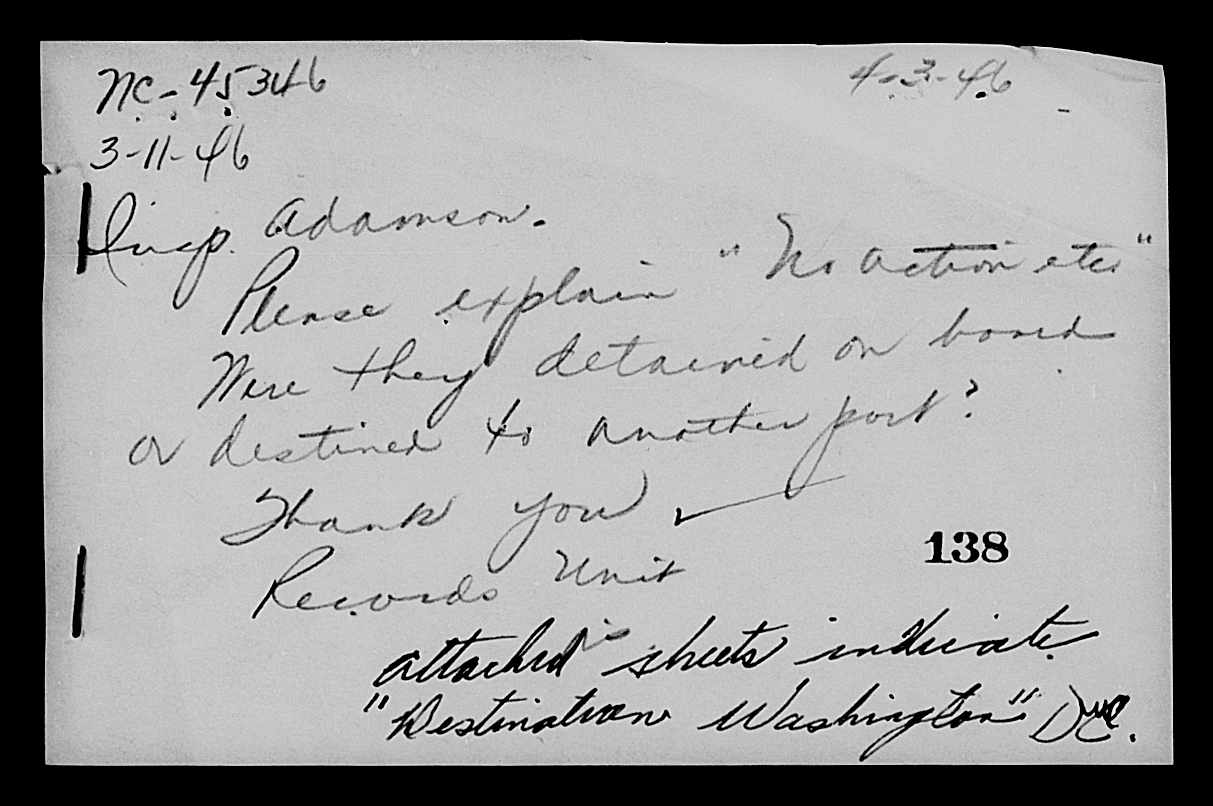 NC-45346
4-3-46
3-11-46
Insp. Adamson.
Please explain "No action etc"
Were they detained on board
or destined to another port?
Thank you ✓
Records Unit
138
attached sheets indicate
"Destination Washington" D.C.